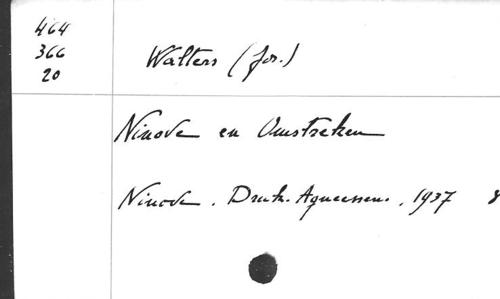 464
366
20
Walters (Jos.)
Ninove en Omstreken
Ninove. Druk. Agneessens., 1937 8